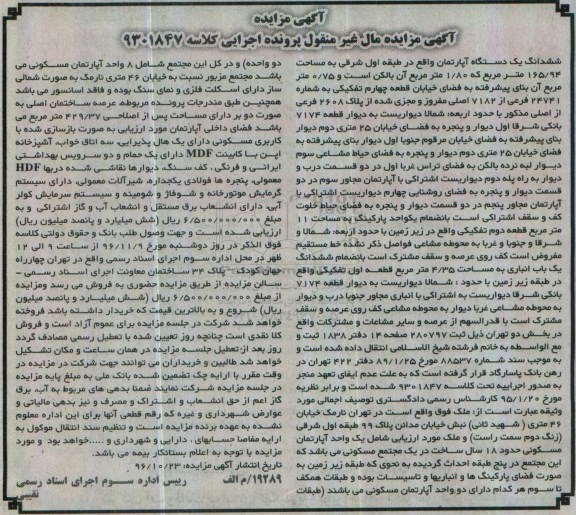 آگهی مزایده
آگهی مزایده مال غیر منقول پرونده اجرایی کلاسه ۹۳۰۱۸۴۷
ششدانگ یک دستگاه آپارتمان واقع در طبقه اول شرقی به مساحت
۱۶۵/۹۴ متر مربع که ۱/۸۰ متر مربع آن بالکن است و ۰/۷۵ متر
مربع آن بنای پیشرفته به فضای خیابان قطعه چهارم تفکیکی به شماره
۲۴۷۴۱ فرعی از ۷۱۸۲ اصلی مفروز و مجزی شده از پلاک ۲۶۰۸ فرعی
از اصلی مذکور با حدود اربعه: شمالا دیواریست به دیوار قطعه ۷۱۷۴
بانکی شرقا اول دیوار و پنجره به فضای خیابان ۲۵ متری دوم دیوار
بنای پیشرفته به فضای خیابان مرقوم جنوبا اول دیوار بنای پیشرفته به
فضای خیابان ۲۵ متری دوم دیوار و پنجره به فضای حیاط مشاعی سوم
دیوار لبه نرده بالکن به فضای تراس غربا اول در دو قسمت درب و
دیوار به راه پله دوم دیواریست اشتراکی با آپارتمان مجاور سوم در دو
قسمت دیوار و پنجره به فضای روشنایی چهارم دیواریست اشتراکی با
آپارتمان مجاور پنجم در دو قسمت دیوار و پنجره به فضای حیاط خلوت
کف و سقف اشتراکی است بانضمام یکواحد پارکینگ به مساحت ۱۱
متر مربع قطعه دوم تفکیکی واقع در زیر زمین با حدود اربعه: شمالا و
شرقا و جنوبا و غربا به محوطه مشاعی فواصل ذکر نشده خط مستقیم
مفروض است کف روی عرصه و سقف مشترک است بانضمام ششدانگ
یک باب انباری به مساحت ۴/۳۵ متر مربع قطعه اول تفکیکی واقع
در طبقه زیر زمین با حدود : شمالا دیواریست به دیوار قطعه ۷۱۷۴
بانکی شرقا دیواریست به اشتراکی با انباری مجاور جنوبا درب و دیوار
به محوطه مشاعی غربا دیوار به محوطه مشاعی کف روی عرصه و سقف
مشترک است با قدرالسهم از عرصه و سایر مشاعات و مشترکات واقع
در بخش دو تهران ذیل ثبت ۲۸۰۷۹۷ صفحه ۱۴ دفتر ۱۸۳۸ ثبت و
مع الواسطه به خانم فرشته شیخ الاسلامی انتقال داده شده است و
به موجب سند شماره ۸۸۵۳۷ مورخ ۸۹/۱/۲۵ دفتر ۴۲۲ تهران در
رهن بانک پاسارگاد قرار گرفته است که به علت عدم ایفای تعهد منجر
به صدور اجراییه تحت کلاسه ۹۳۰۱۸۴۷ شده است و برابر نظریه
مورخ ۹۵/۱/۲۰ کارشناس رسمی دادگستری توصیف اجمالی مورد
وثیقه عبارت است از: ملک فوق واقع است در تهران نارمک خیابان
۴۶ متری ( شهید ثانی) نبش خیابان مدائن پلاک ۹۹ طبقه اول شرقی
(زنگ دوم سمت راست) و ملک مورد ارزیابی شامل یک واحد آپارتمان
مسکونی حدود ۱۸ سال ساخت در یک مجتمع مسکونی می باشد که
این مجتمع در پنج طبقه احداث گردیده به نحوی که طبقه زیر زمین به
صورت فضای پارکینگ ها و انباریها و تاسیسات بوده و طبقات همکف
تا سوم هر کدام دارای دو واحد آپارتمان مسکونی می باشند (طبقات
دو واحده) و در کل این مجتمع شامل ۸ واحد آپارتمان مسکونی می
باشد مجتمع مزبور نسبت به خیابان ۴۶ متری نارمک به صورت شمالی
ساز دارای اسکلت فلزی و نمای سنگ بوده و فاقد آسانسور می باشد
همچنین طبق مندرجات پرونده مربوطه، عرصه ساختمان اصلی به
صورت دو بر دارای مساحت پس از اصلاحی ۴۲۹/۳۷ متر مربع می
باشد فضای داخلی آپارتمان مورد ارزیابی به صورت بازسازی شده با
کاربری مسکونی دارای یک هال پذیرایی، سه اتاق خواب، آشپزخانه
اپن با کابینت MDF دارای یک حمام و دو سرویس بهداشتی
ایرانی و فرنگی ، کف سنگ، دیوارها نقاشی شده دربها HDF
معمولی، پنجره ها فولادی یکجداره، شیرآلات معمولی، دارای سیستم
گرمایش موتورخانه و شوفاژ و شومینه و سیستم سرمایش کولر
آبی، دارای انشعاب برق مستقل و انشعاب آب و گاز اشتراکی و به
مبلغ ۶/۵۰۰/۰۰۰/۰۰۰ ریال (شش میلیارد و پانصد میلیون ریال)
ارزیابی شده است و جهت وصول طلب بانک و حقوق دولتی کلاسه
فوق الذکر در روز دوشنبه مورخ ۹۶/۱۱/۹ از ساعت ۹ الی ۱۲
ظهر در محل اداره سوم اجرای اسناد رسمی واقع در تهران چهارراه
جهان کودک - پلاک ۳۴ ساختمان معاونت اجرای اسناد رسمی -
سالن مزایده از طریق مزایده حضوری به فروش می رسد ومزایده
از مبلغ ۶/۵۰۰/۰۰۰/۰۰۰ ریال (شش میلیارد و پانصد میلیون
ریال) شروع و به بالاترین قیمت که خریدار داشته باشد فروخته
خواهد شد شرکت در جلسه مزایده برای عموم آزاد است و فروش
کلا نقدی است چنانچه روز تعیین شده با تعطیل رسمی مصادف گردد
روز بعد از تعطیلی جلسه مزایده در همان ساعت و مکان تشکیل
خواهد شد طالبین و خریداران می توانند جهت شرکت در مزایده در
وقت مقرر با ارایه چک تضمین شده بانک ملی به مبلغ پایه مزایده
در جلسه مزایده شرکت نمایند ضمنا بدهی های مربوط به آب، برق
گاز اعم از حق انشعاب و اشتراک و مصرف و نیز بدهی مالیاتی و
عوارض شهرداری و غیره که رقم قطعی آنها برای این اداره معلوم
نشده به عهده برنده مزایده است و تنظیم سند انتقال موکول به
ارایه مفاصا حسابهای ، دارایی و شهرداری و .....خواهد بود و مورد
مزایده با توجه به اعلام بستانکار بیمه می باشد.
تاریخ انتشار آگهی مزایده: ۹۶/۱۰/۲۳
۱۹۲۸۹/م الف رییس اداره سوم اجرای اسناد رسمی
نقیبی